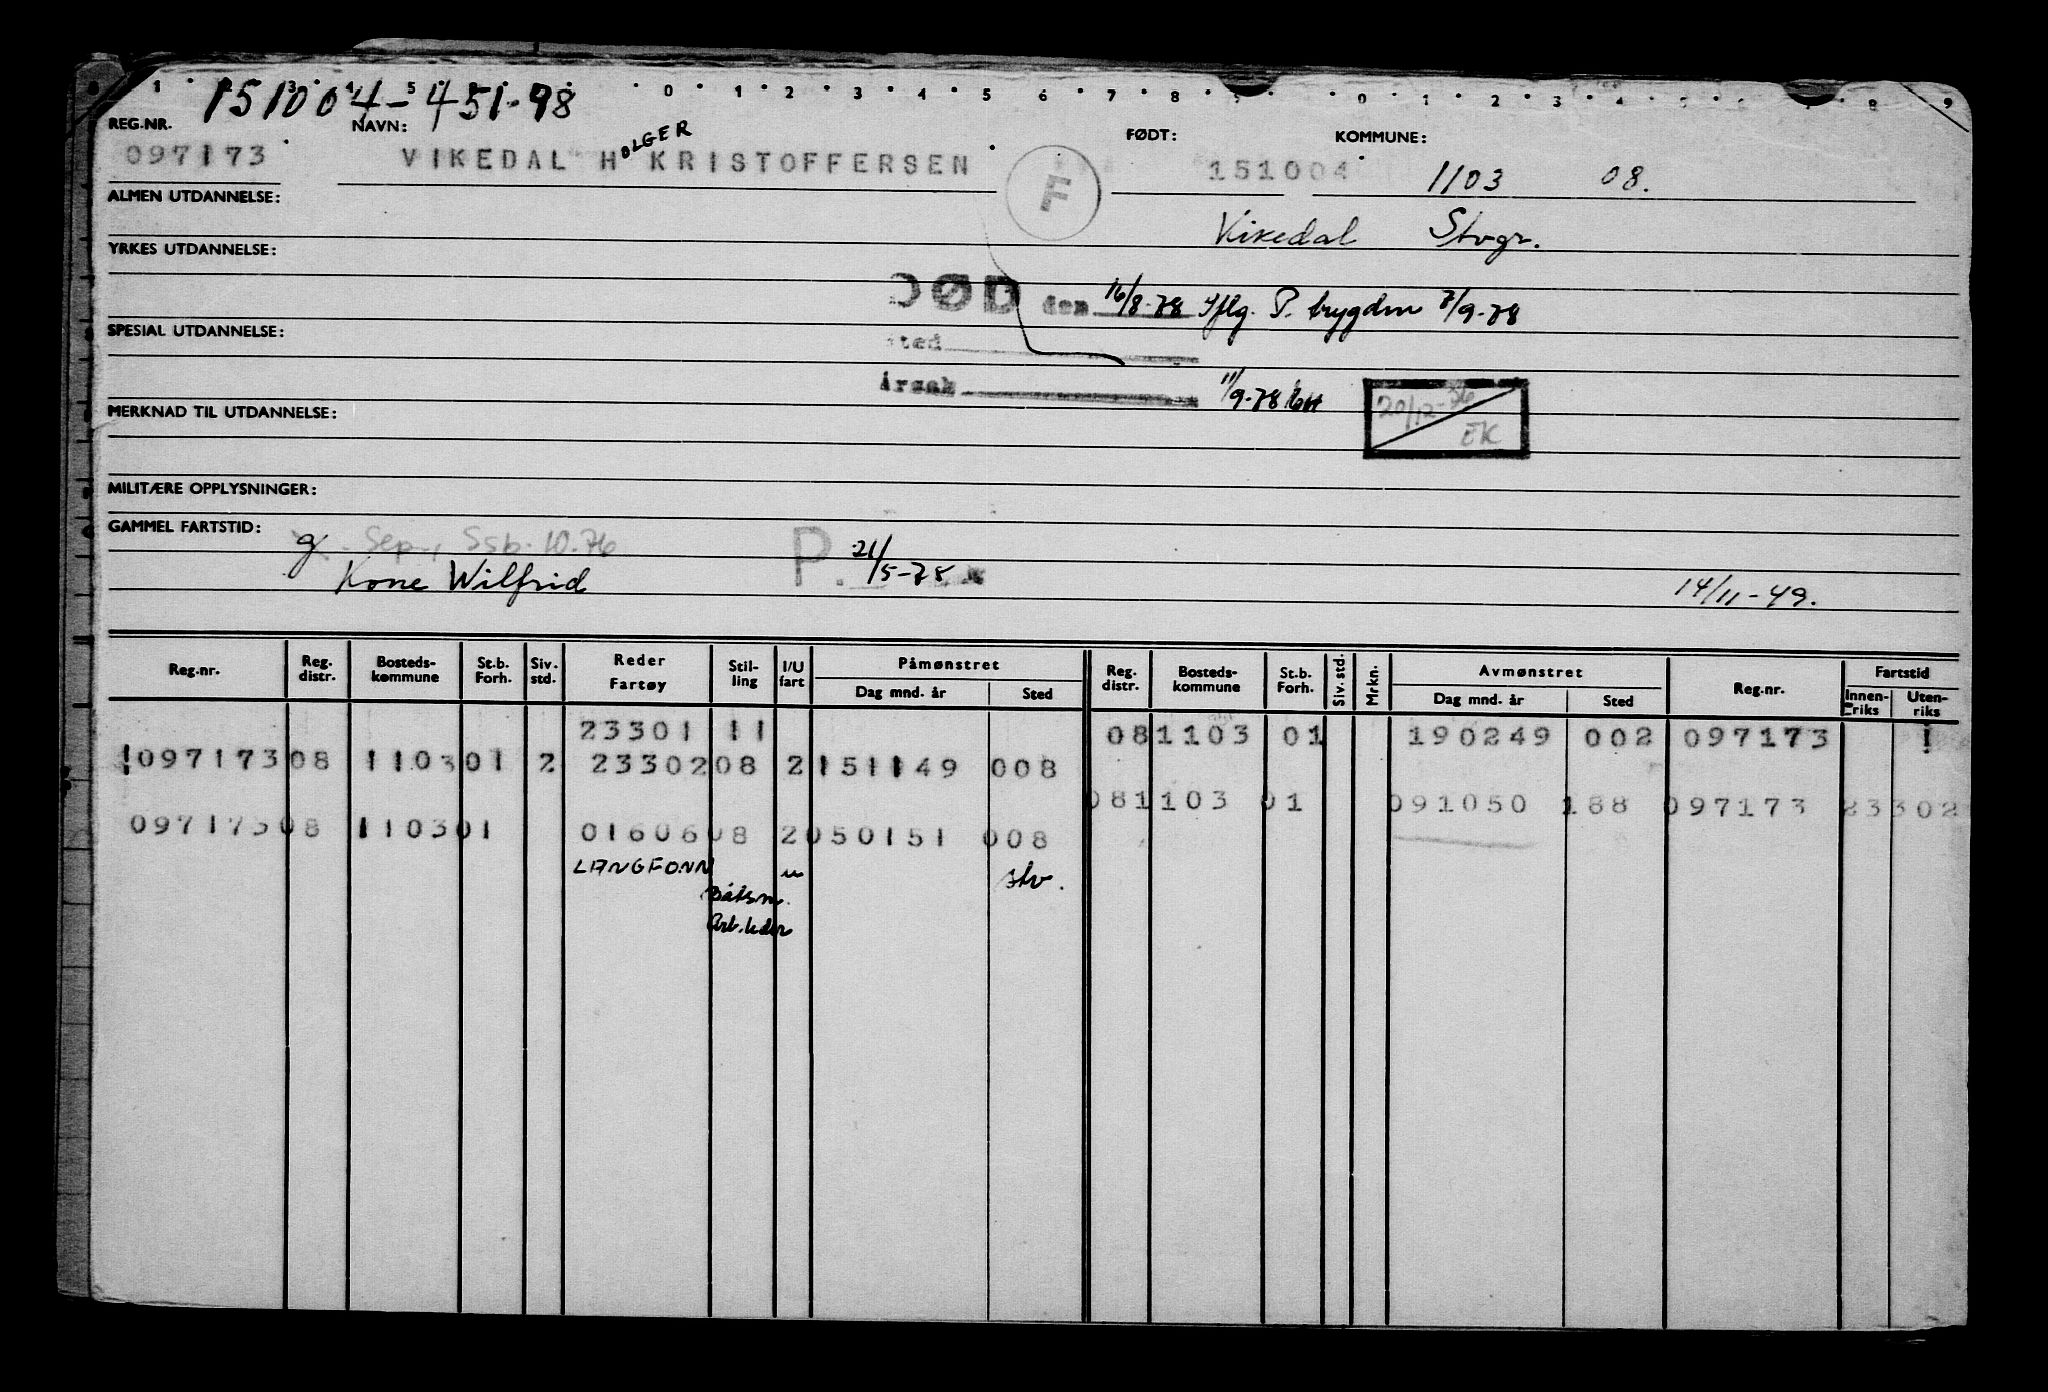 151004-451-98
REG.NR. NAVN: FØDT: KOMMUNE:
097173 VIKEDAL HOLGER KRISTOFFERSEN F 151004 1103 08.
ALMEN UTDANNELSE:
Vikedal Stvgr.
YRKES UTDANNELSE:
DØD den 16/8-78 Iflg. P. trygden 7/9-78
SPESIAL UTDANNELSE:
sted
Årsak 11/9-78
20/12-56
EK
MERKNAD TIL UTDANNELSE:
MILITÆRE OPPLYSNINGER:
GAMMEL FARTSTID:
g Sep., Ssb. 10.76 P. 21/5-78
Kone Wilfrid 14/11-49.
Reg.nr. Reg. distr. Bosteds-kommune St.b. Forh. Siv. std. Reder Fartøy Stil-ling I/U fart Påmønstret Dag mnd. år Sted Reg. distr. Bosteds-kommune St.b. Forh. Siv. std. Mrkn. Avmønstret Dag mnd. år Sted Reg.nr. Fartstid Innen-riks Uten-riks
23301 11 08 1103 01 190249 002 097173 !
!097173 08 1103 01 2 23302 08 2 151149 008
08 1103 01 091050 188 097173 23302
097173 08 1103 01 01606 08 2 050151 008
LANGFONN u stv.
Båtsm.
Arb.leder